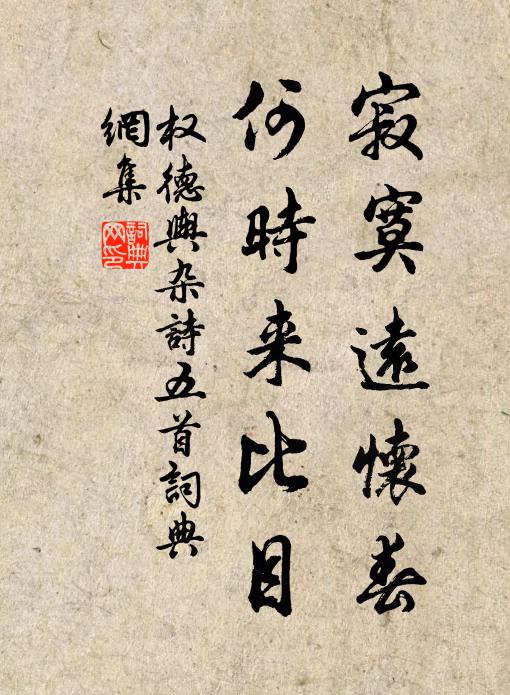 寂寞遠懷春
何時来比目
权德輿杂詩五首詞典
網集
詞典
网印